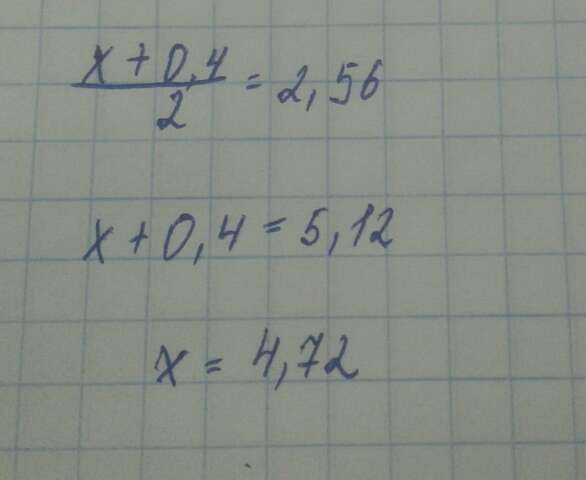 x + 0,4
2
= 2,56
x + 0,4 = 5,12
x = 4,72